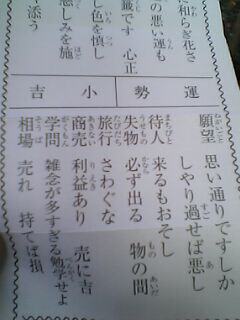 た和らぎ花さ
の悪い運も
籤です 心正
し色を慎し
しみを施
添う
運勢
小吉
願望 思い通りですしか
しやり過せば悪し
待人 来るもおそし
失物 必ず出る 物の間
旅行 さわぐな
商売 利益あり 売に吉
学問 雑念が多すぎる勉学せよ
相場 売れ 持てば損